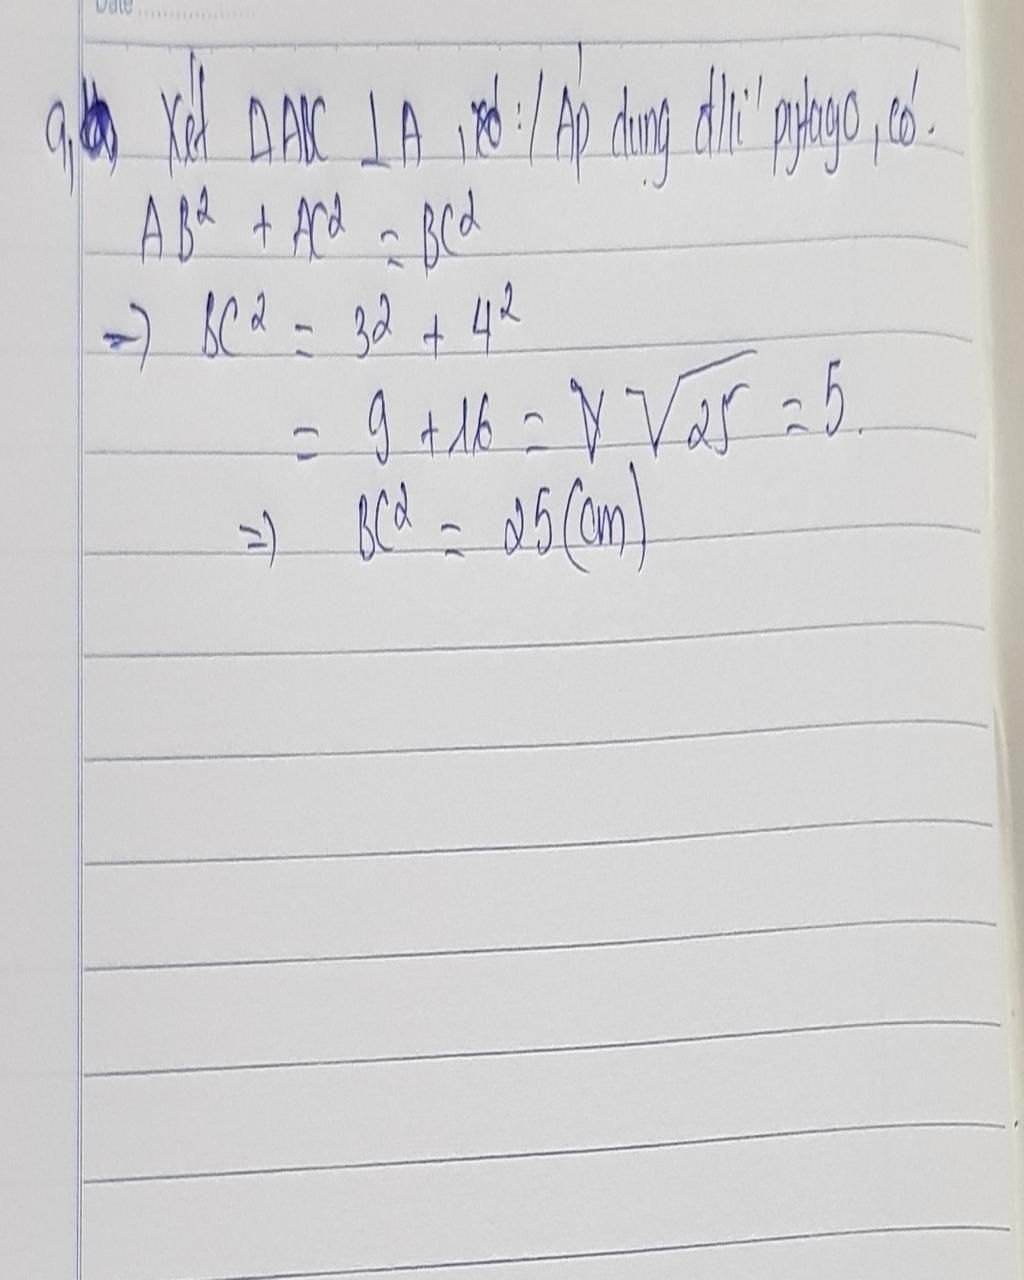 Date
a, Xét ΔABC ⊥ A, có: / Áp dụng đlí pytago, có.
AB² + AC² = BC²
=) BC² = 3² + 4²
= 9 + 16 = √ √25 = 5.
=) BC² = 25 (cm)